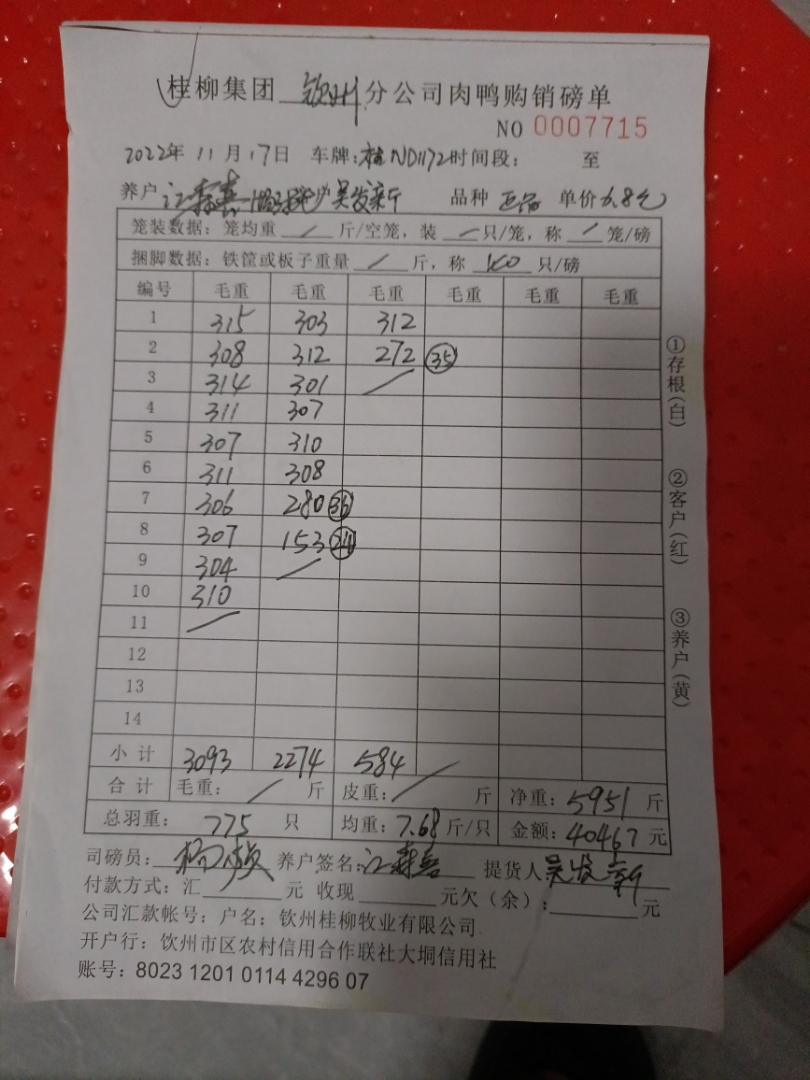 桂柳集团 钦州 分公司肉鸭购销磅单
NO 0007715
2022年 11月17日 车牌:桂ND1172时间段: 至
养户 江森喜 吴发新 品种 正品 单价6.8元
笼装数据: 笼均重 / 斤/空笼, 装 / 只/笼, 称 / 笼/磅
捆脚数据: 铁筐或板子重量 / 斤, 称 40 只/磅
编号 毛重 毛重 毛重 毛重 毛重 毛重
1 315 303 312
2 308 312 272 35
3 314 301 /
4 311 307
5 307 310
6 311 308
7 306 280 36
8 307 153 24
9 304 /
10 310
11 /
12
13
14
小计 3093 2274 584 /
合计 毛重: / 斤 皮重: / 斤 净重: 5951 斤
总羽重: 775 只 均重: 7.68 斤/只 金额: 40467 元
司磅员: 养户签名: 江森喜 提货人 吴发新
付款方式: 汇 元 收现 元欠(余): 元
公司汇款帐号: 户名: 钦州桂柳牧业有限公司
开户行: 饮州市区农村信用合作联社大垌信用社
账号: 8023 1201 0114 4296 07
①存根(白)
②客户(红)
③养户(黄)